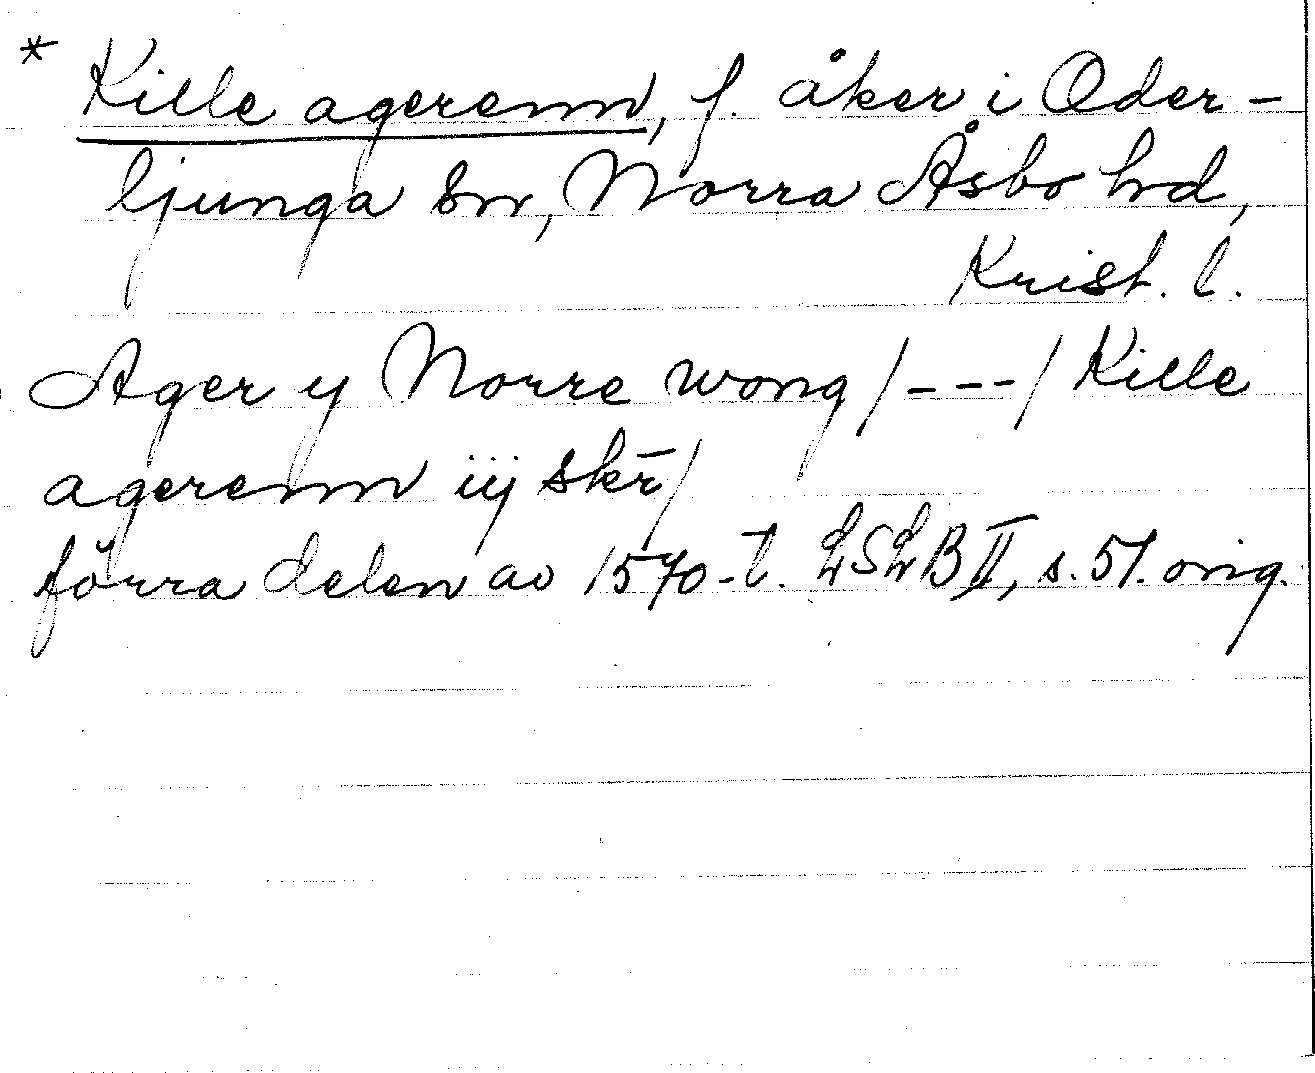 * Kille agerenn, f. åker i Oder-
ljunga sn, Norra Åsbo hd,
Krist. l.
Ager y Norre wong /---/ Kille
agerenn iij skr̄/
förra delen av 1570-t. LSLB II, s. 51. orig.